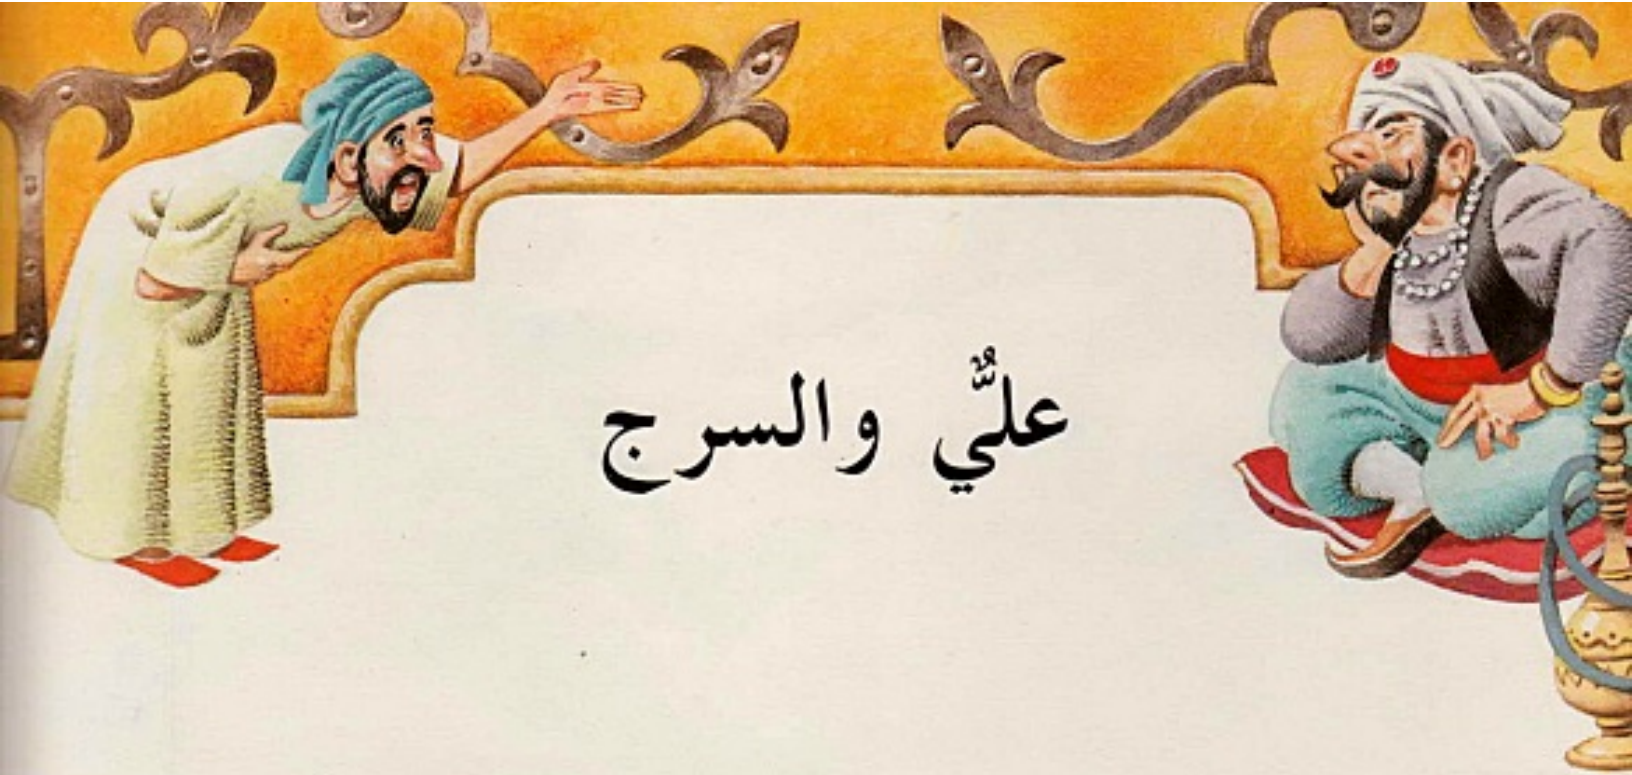 عليٌّ والسرج